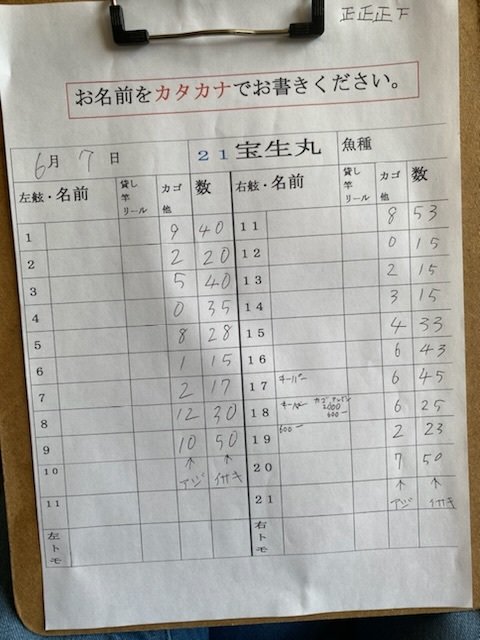 正正正下
お名前をカタカナでお書きください。
6月 7日 21宝生丸 魚種
左舷・名前 貸し竿リール カゴ他 数 右舷・名前 貸し竿リール カゴ他 数
1 9 40 11 8 53
2 2 20 12 0 15
3 5 40 13 2 15
4 0 35 14 3 15
5 8 28 15 4 33
6 1 15 16 6 43
7 2 17 17 キーパー 6 45
8 12 30 18 キーパー 2000 600ー 6 25
9 10 50 19 600ー 2 23
10 ↑アジ ↑イサキ 20 7 50
11 21 ↑アジ ↑イサキ
左トモ 右トモ